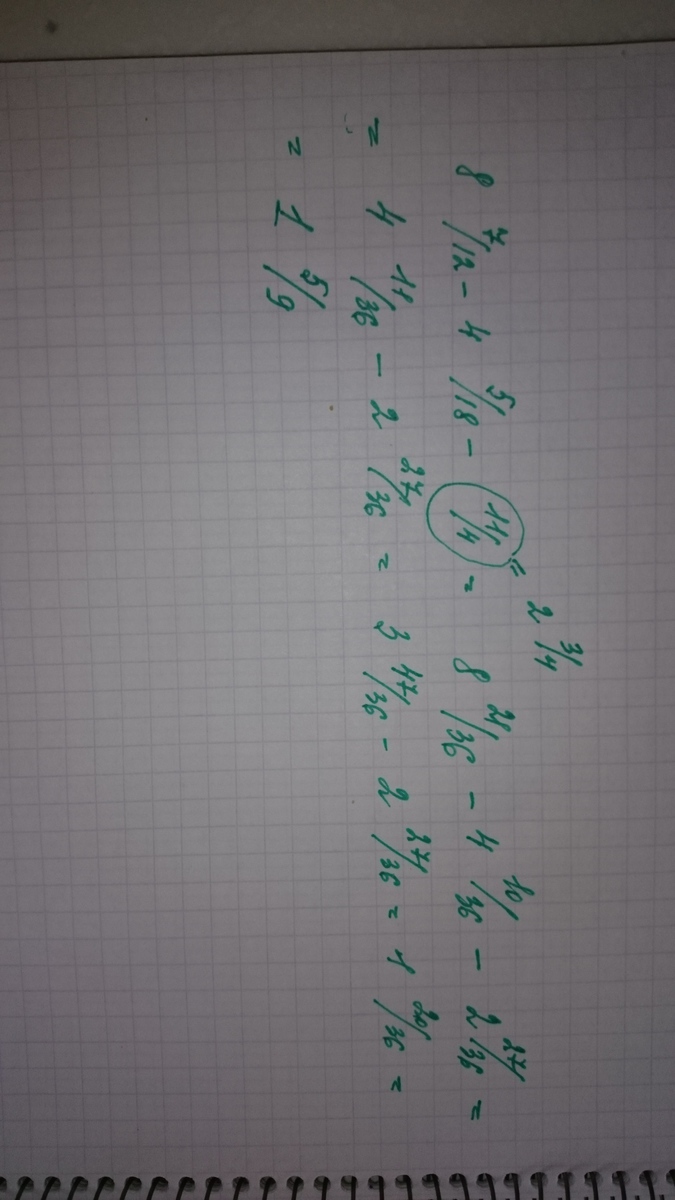 8 7/12 - 4 5/18 - 11/4 = 8 21/36 - 4 10/36 - 2 27/36 =
= 2 3/4
= 4 11/36 - 2 27/36 = 3 47/36 - 2 27/36 = 1 20/36 =
= 1 5/9